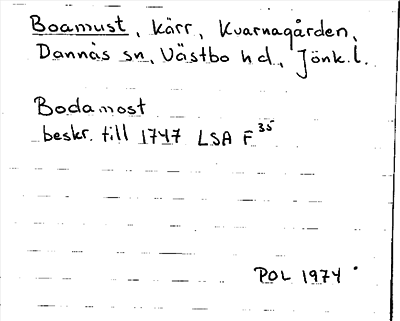 Boamust, kärr, Kvarnagården,
Dannäs sn, Västbo hd, Jönk.l.
Bodamost
beskr. till 1747 LSA F 35
POL 1974